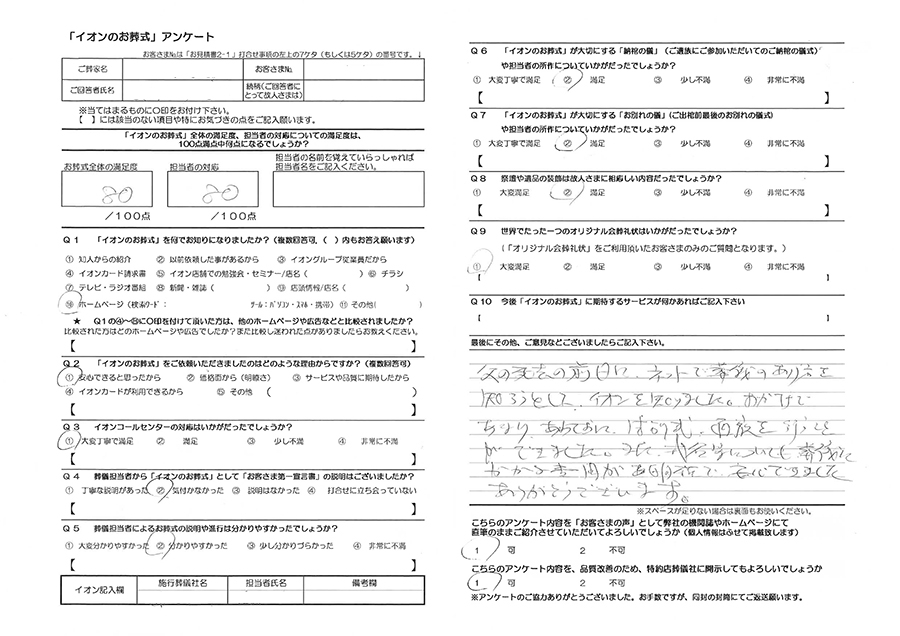 「イオンのお葬式」アンケート
お客さま№は「お見積書2-1」打合せ事項の左上の7ケタ（もしくは5ケタ）の番号です。↓
ご葬家名
お客さま№
ご回答者氏名
続柄（ご回答者に
とって故人さまは）
※当てはまるものに○印をお付け下さい。
【　】には該当のない項目や特にお気づきの点をご記入願います。
「イオンのお葬式」全体の満足度、担当者の対応についての満足度は、
100点満点中何点になるでしょうか？
お葬式全体の満足度
担当者の対応
担当者の名前を覚えていらっしゃれば
担当者名をご記入ください。
80
80
／100点
／100点
Q１　「イオンのお葬式」を何でお知りになりましたか？（複数回答可、（　）内もお答え願います）
① 知人からの紹介　② 以前依頼した事があるから　③ イオングループ従業員だから
④ イオンカード請求書　⑤ イオン店舗での勉強会・セミナー/店名（　）　⑥ チラシ
⑦ テレビ・ラジオ番組　⑧ 新聞・雑誌（　）　⑨ 店頭情報/店名（　）
⑩ ホームページ（検索ワード：　ツール：パソコン・スマホ・携帯）⑪ その他（　）
★　Q１の④～⑩に○印を付けて頂いた方は、他のホームページや広告などと比較されましたか？
比較された方はどのホームページや広告でしたか？また比較し迷われた点がありましたらお教えください。
【　】
Q２　「イオンのお葬式」をご依頼いただきましたのはどのような理由からですか？（複数回答可）
① 安心できると思ったから　② 価格面から（明瞭さ）　③ サービスや品質に期待したから
④ イオンカードが利用できるから　⑤ その他（　）
【　】
Q３　イオンコールセンターの対応はいかがだったでしょうか？
① 大変丁寧で満足　② 満足　③ 少し不満　④ 非常に不満
【　】
Q４　葬儀担当者から「イオンのお葬式」として「お客さま第一宣言書」の説明はございましたか？
① 丁寧な説明があった　② 気付かなかった　③ 説明はなかった　④ 打合せに立ち会っていない
【　】
Q５　葬儀担当者によるお葬式の説明や進行は分かりやすかったでしょうか？
① 大変分かりやすかった　② 分かりやすかった　③ 少し分かりづらかった　④ 非常に不満
【　】
イオン記入欄
施行葬儀社名
担当者氏名
備考欄
Q６　「イオンのお葬式」が大切にする「納棺の儀」（ご遺族にご参加いただいてのご納棺の儀式）
や担当者の所作についていかがだったでしょうか？
① 大変丁寧で満足　② 満足　③ 少し不満　④ 非常に不満
【　】
Q７　「イオンのお葬式」が大切にする「お別れの儀」（ご出棺前最後のお別れの儀式）
や担当者の所作についていかがだったでしょうか？
① 大変丁寧で満足　② 満足　③ 少し不満　④ 非常に不満
【　】
Q８　祭壇や遺品の装飾は故人さまに相応しい内容だったでしょうか？
① 大変満足　② 満足　③ 少し不満　④ 非常に不満
【　】
Q９　世界でたった一つのオリジナル会葬礼状はいかがだったでしょうか？
（「オリジナル会葬礼状」をご利用頂いたお客さまのみのご質問となります。）
① 大変満足　② 満足　③ 少し不満　④ 非常に不満
【　】
Q10　今後「イオンのお葬式」に期待するサービスが何かあればご記入下さい
【　】
最後にその他、ご意見などございましたらご記入下さい。
父の死去の前日に、ネットで葬儀のあり方を
知ろうとして、イオンを知りました。おかげで
あまり、あわてずに
ができました。また、
かかる費用が で、安心できました
ありがとうございます。
※スペースが足りない場合は裏面もお使いください。
こちらのアンケート内容を「お客さまの声」として弊社の機関誌やホームページにて
直筆のままご紹介させていただいてよろしいでしょうか（個人情報はふせて掲載致します）
1　可　2　不可
こちらのアンケート内容を、品質改善のため、特約店葬儀社に開示してもよろしいでしょうか
1　可　2　不可
※アンケートのご協力ありがとうございました。お手数ですが、同封の封筒にてご返送願います。